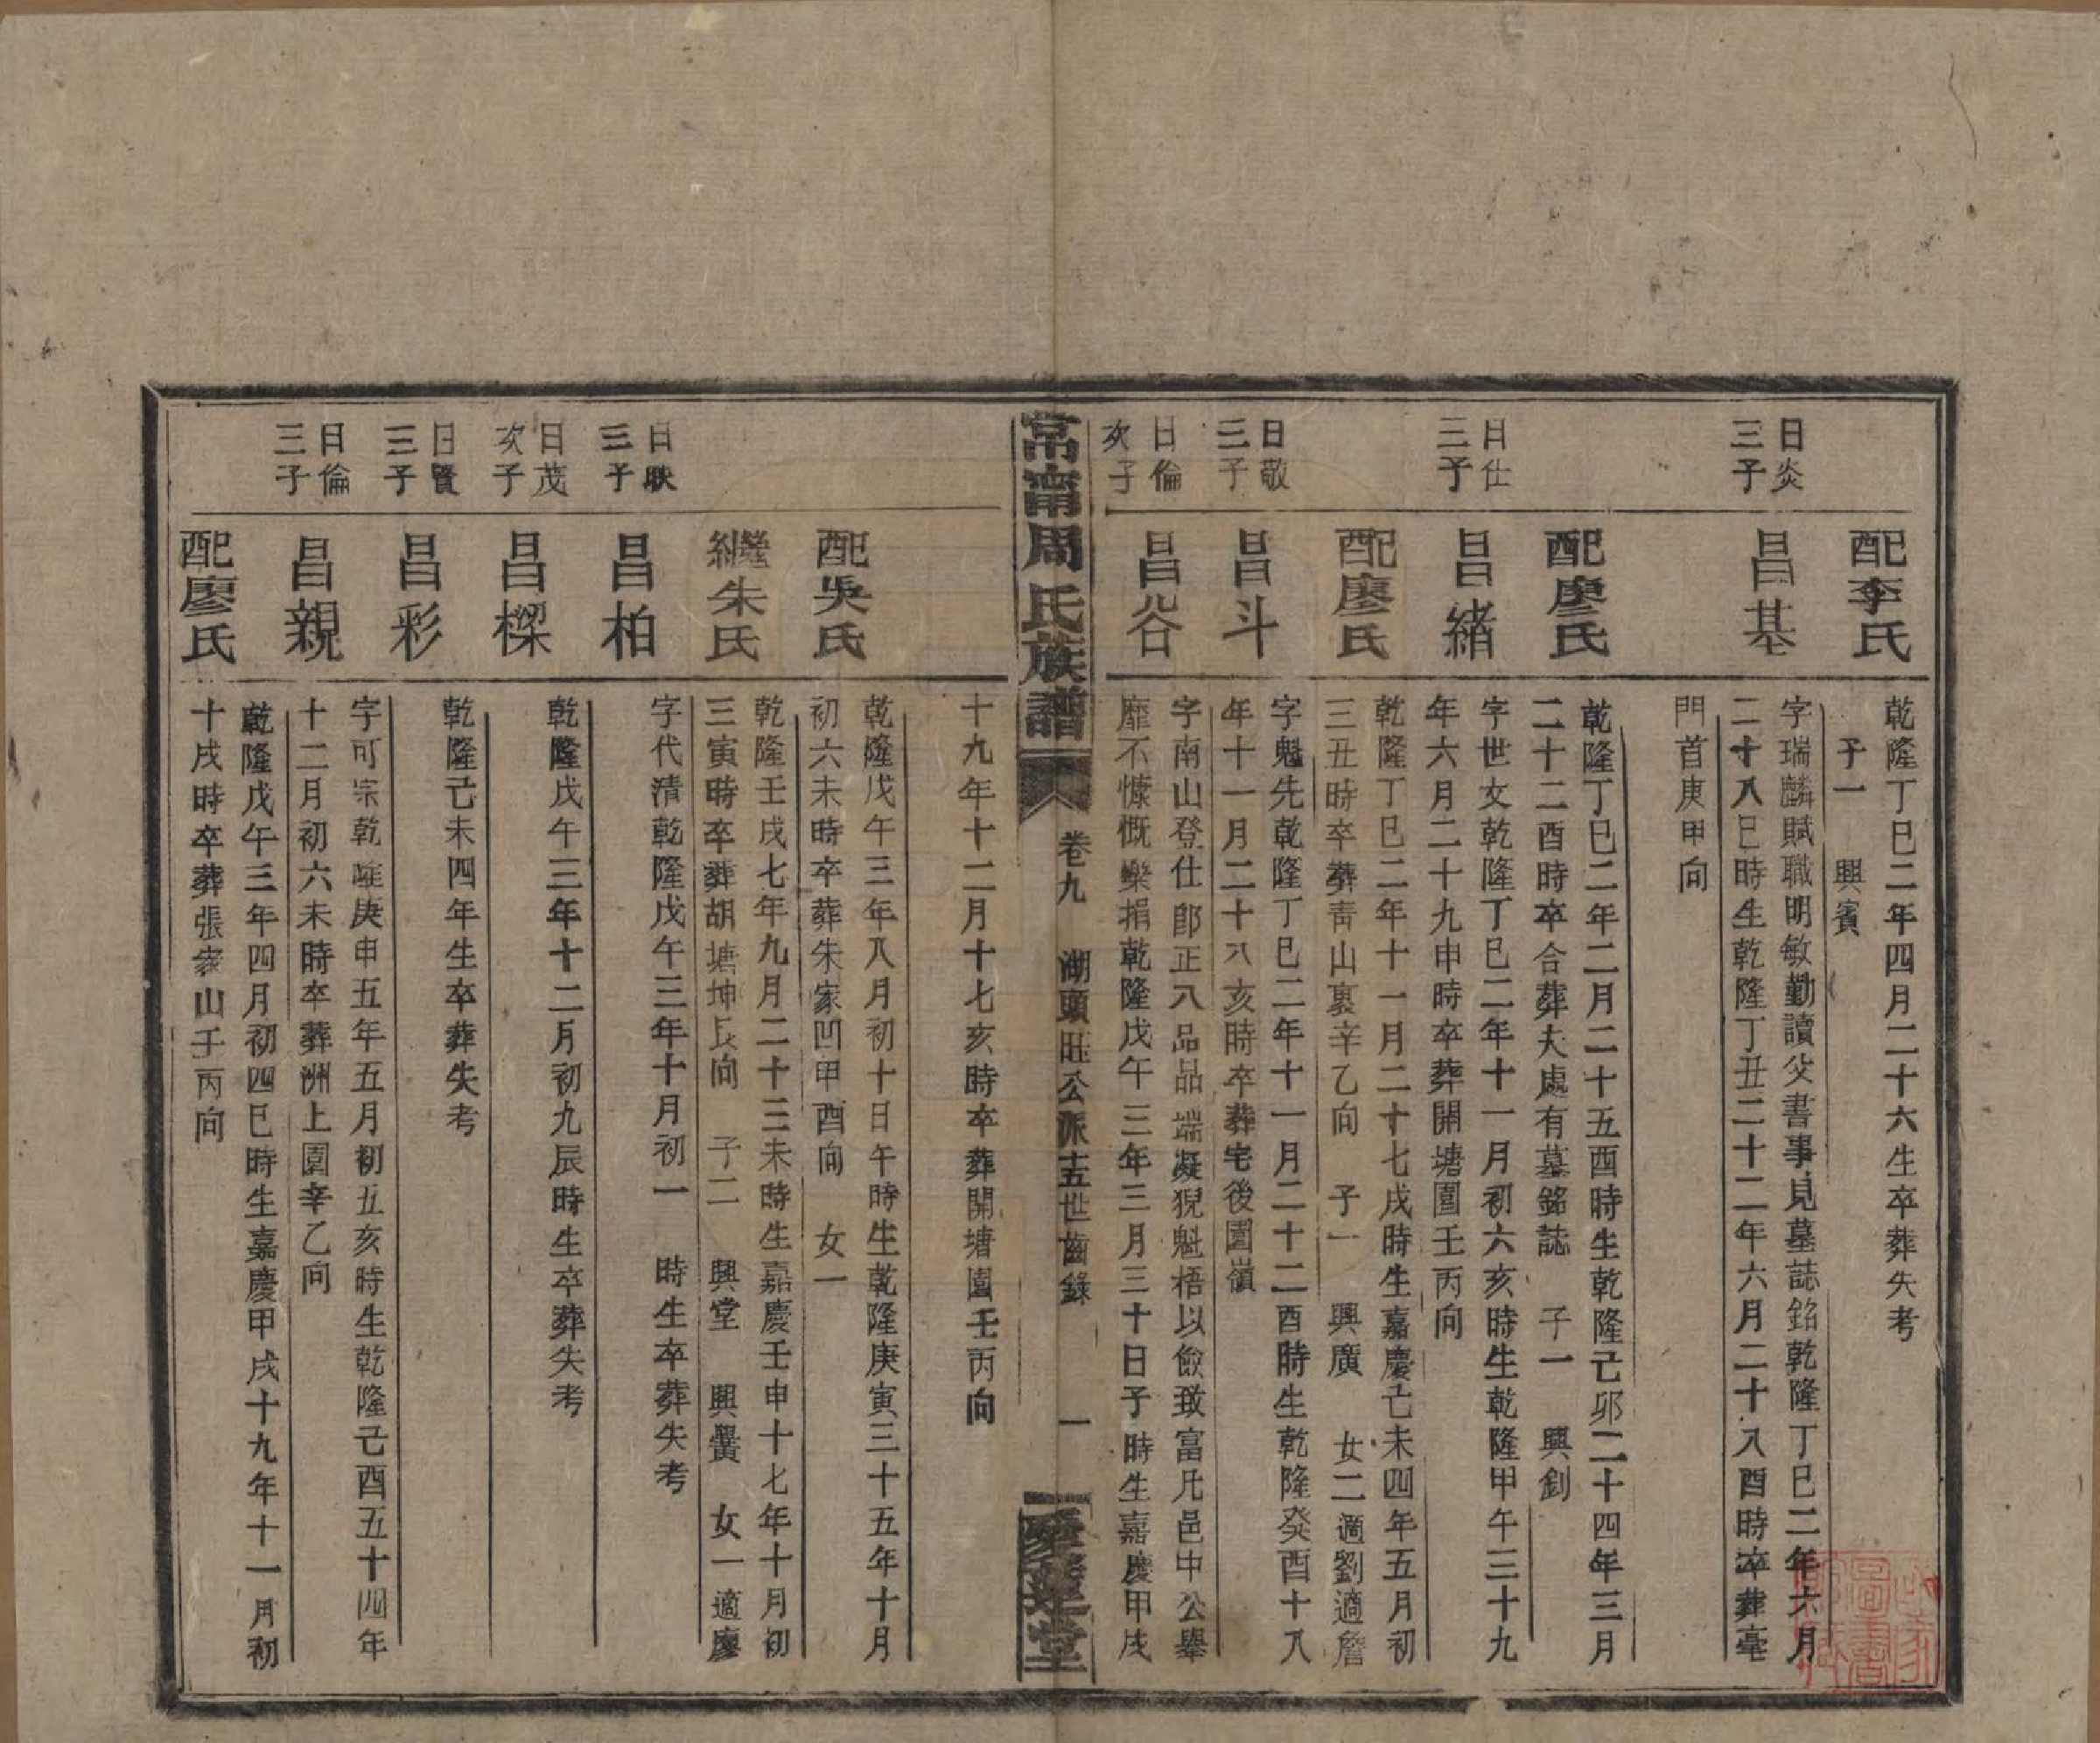 配李氏
乾隆丁巳二年四月二十六生卒葬失考
子一　興賓
日炎
三子
昌基
字瑞麟賦職明敏勤讀父書事見墓誌銘乾隆丁巳二年六月
二十八巳時生乾隆丁丑二十二年六月二十八酉時卒葬亳
門首庚甲向
配廖氏
乾隆丁巳二年二月二十五酉時生乾隆己卯二十四年三月
二十二酉時卒合葬夫處有墓銘誌　子一　興釗
日仕
三子
昌緒
字世文乾隆丁巳二年十一月初六亥時生乾隆甲午三十九
年六月二十九申時卒葬開塘園壬丙向
配廖氏
乾隆丁巳二年十一月二十七戌時生嘉慶己未四年五月初
三丑時卒葬青山裏辛乙向　子一　興廣　女二適劉適詹
日敬
三子
昌斗
字魁先乾隆丁巳二年十一月二十二酉時生乾隆癸酉十八
年十一月二十八亥時卒葬宅後園嶺
日倫
次子
昌谷
字南山登仕郎正八品品端凝猊魁梧以儉致富凡邑中公舉
靡不慷慨樂捐乾隆戊午三年三月三十日子時生嘉慶甲戌
常甯周氏族譜
卷九　湖頭旺公派十五世齒錄　一
愛蓮堂
十九年十二月十七亥時卒葬開塘園壬丙向
配吳氏
乾隆戊午三年八月初十日午時生乾隆庚寅三十五年十月
初六未時卒葬朱家凹甲酉向　女一
繼朱氏
乾隆壬戌七年九月二十三未時生嘉慶壬申十七年十月初
三寅時卒葬胡塘坤艮向　子二　興堂　興黌　女一適廖
日映
三子
昌柏
字代清乾隆戊午三年十月初一　時生卒葬失考
日茂
次子
昌樑
乾隆戊午三年十二月初九辰時生卒葬失考
日賢
三子
昌彩
乾隆己未四年生卒葬失考
日倫
三子
昌親
字可宗乾隆庚申五年五月初五亥時生乾隆己酉五十四年
十二月初六未時卒葬洲上園辛乙向
配廖氏
乾隆戊午三年四月初四巳時生嘉慶甲戌十九年十一月初
十戌時卒葬張家山壬丙向